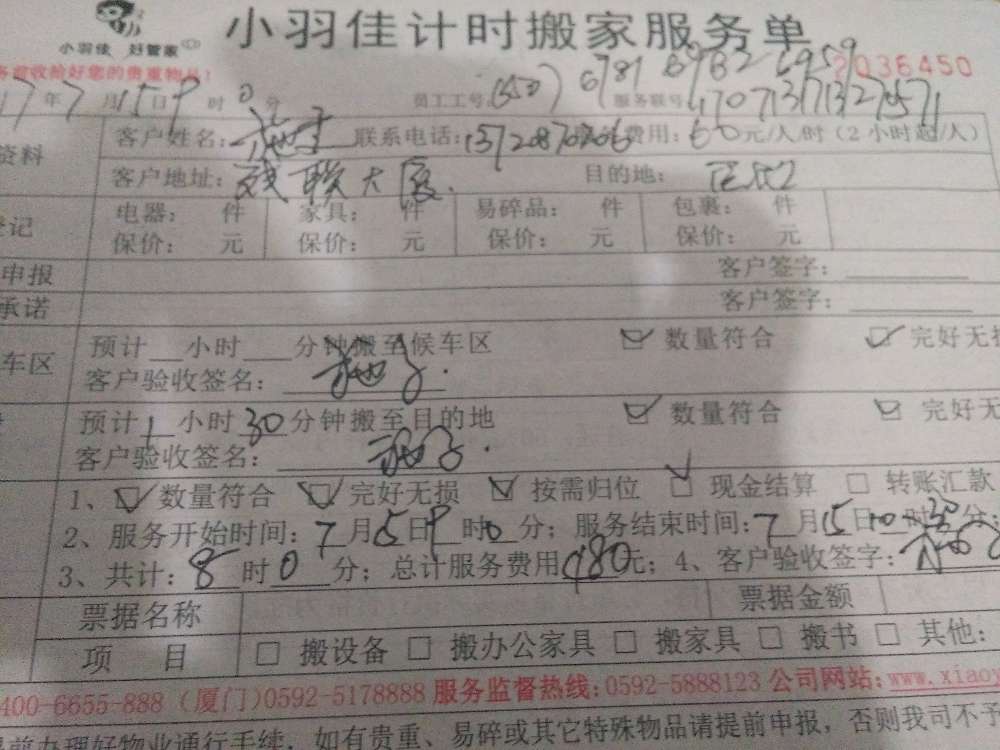 小羽佳 好管家
小羽佳计时搬家服务单
务前收拾好您的贵重物品！
2036450
17年7月15日9时0分
员工工号: 6781 6982 6959 服务联号
资料 客户姓名: 联系电话: 费用: 60元/人/时（2小时起/人）
客户地址: 残联大厦. 目的地:
登记 电器: 件 家具: 件 易碎品: 件 包裹: 件
保价: 元 保价: 元 保价: 元 保价: 元
申报 客户签字:
承诺 客户签字:
车区 预计 小时 分钟搬至候车区 ☑ 数量符合 ☑ 完好无损
客户验收签名:
预计1小时30分钟搬至目的地 ☑ 数量符合 ☑ 完好无
客户验收签名:
1、☑ 数量符合 ☑ 完好无损 ☑ 按需归位 ☑ 现金结算 □ 转账汇款
2、服务开始时间: 7月15日9时0分; 服务结束时间: 7月15日10时30分;
3、共计: 8时0分; 总计服务费用480元; 4、客户验收签字:
票据名称 票据金额
项 目 □ 搬设备 □ 搬办公家具 □ 搬家具 □ 搬书 □ 其他:
400-6655-888 (厦门)0592-5178888 服务监督热线:0592-5888123 公司网站:www.xiaoy
前办理好物业通行手续，如有贵重、易碎或其它特殊物品请提前申报，否则我司不予